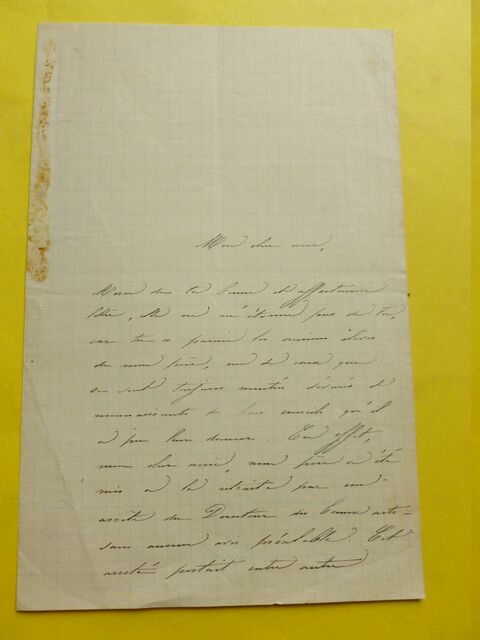 Mon cher ami,
Merci de ta bonne et affectueuse
lettre, elle ne m'étonne pas de toi,
car tu es parmi les anciens élèves
de mon père, un de ceux qui
se sont toujours montrés dévoués et
reconnaissants de bons conseils qu'il
a pu leur donner. En effet,
mon cher ami, mon père a été
mis à la retraite par un
arrêté du Directeur des Beaux arts
sans aucun avis préalable. Cet
arrêté portait entre autre